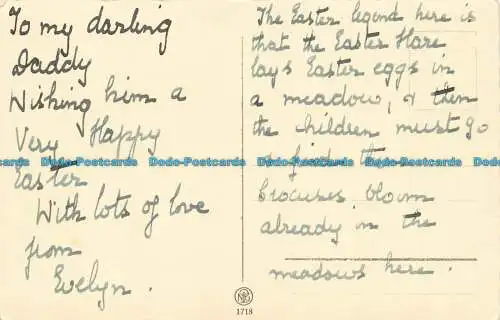 To my darling
Daddy
Wishing him a
Very Happy
Easter
With lots of love
from
Evelyn.
The Easter legend here is
that the Easter Hare
lays Easter eggs in
a meadow, & then
the children must go
& find them
Crocuses bloom
already in the
meadows here.
Dodo-Postcards Dodo-Postcards Dodo-Postcards Dodo-Postcards Dodo-Postcards
1718